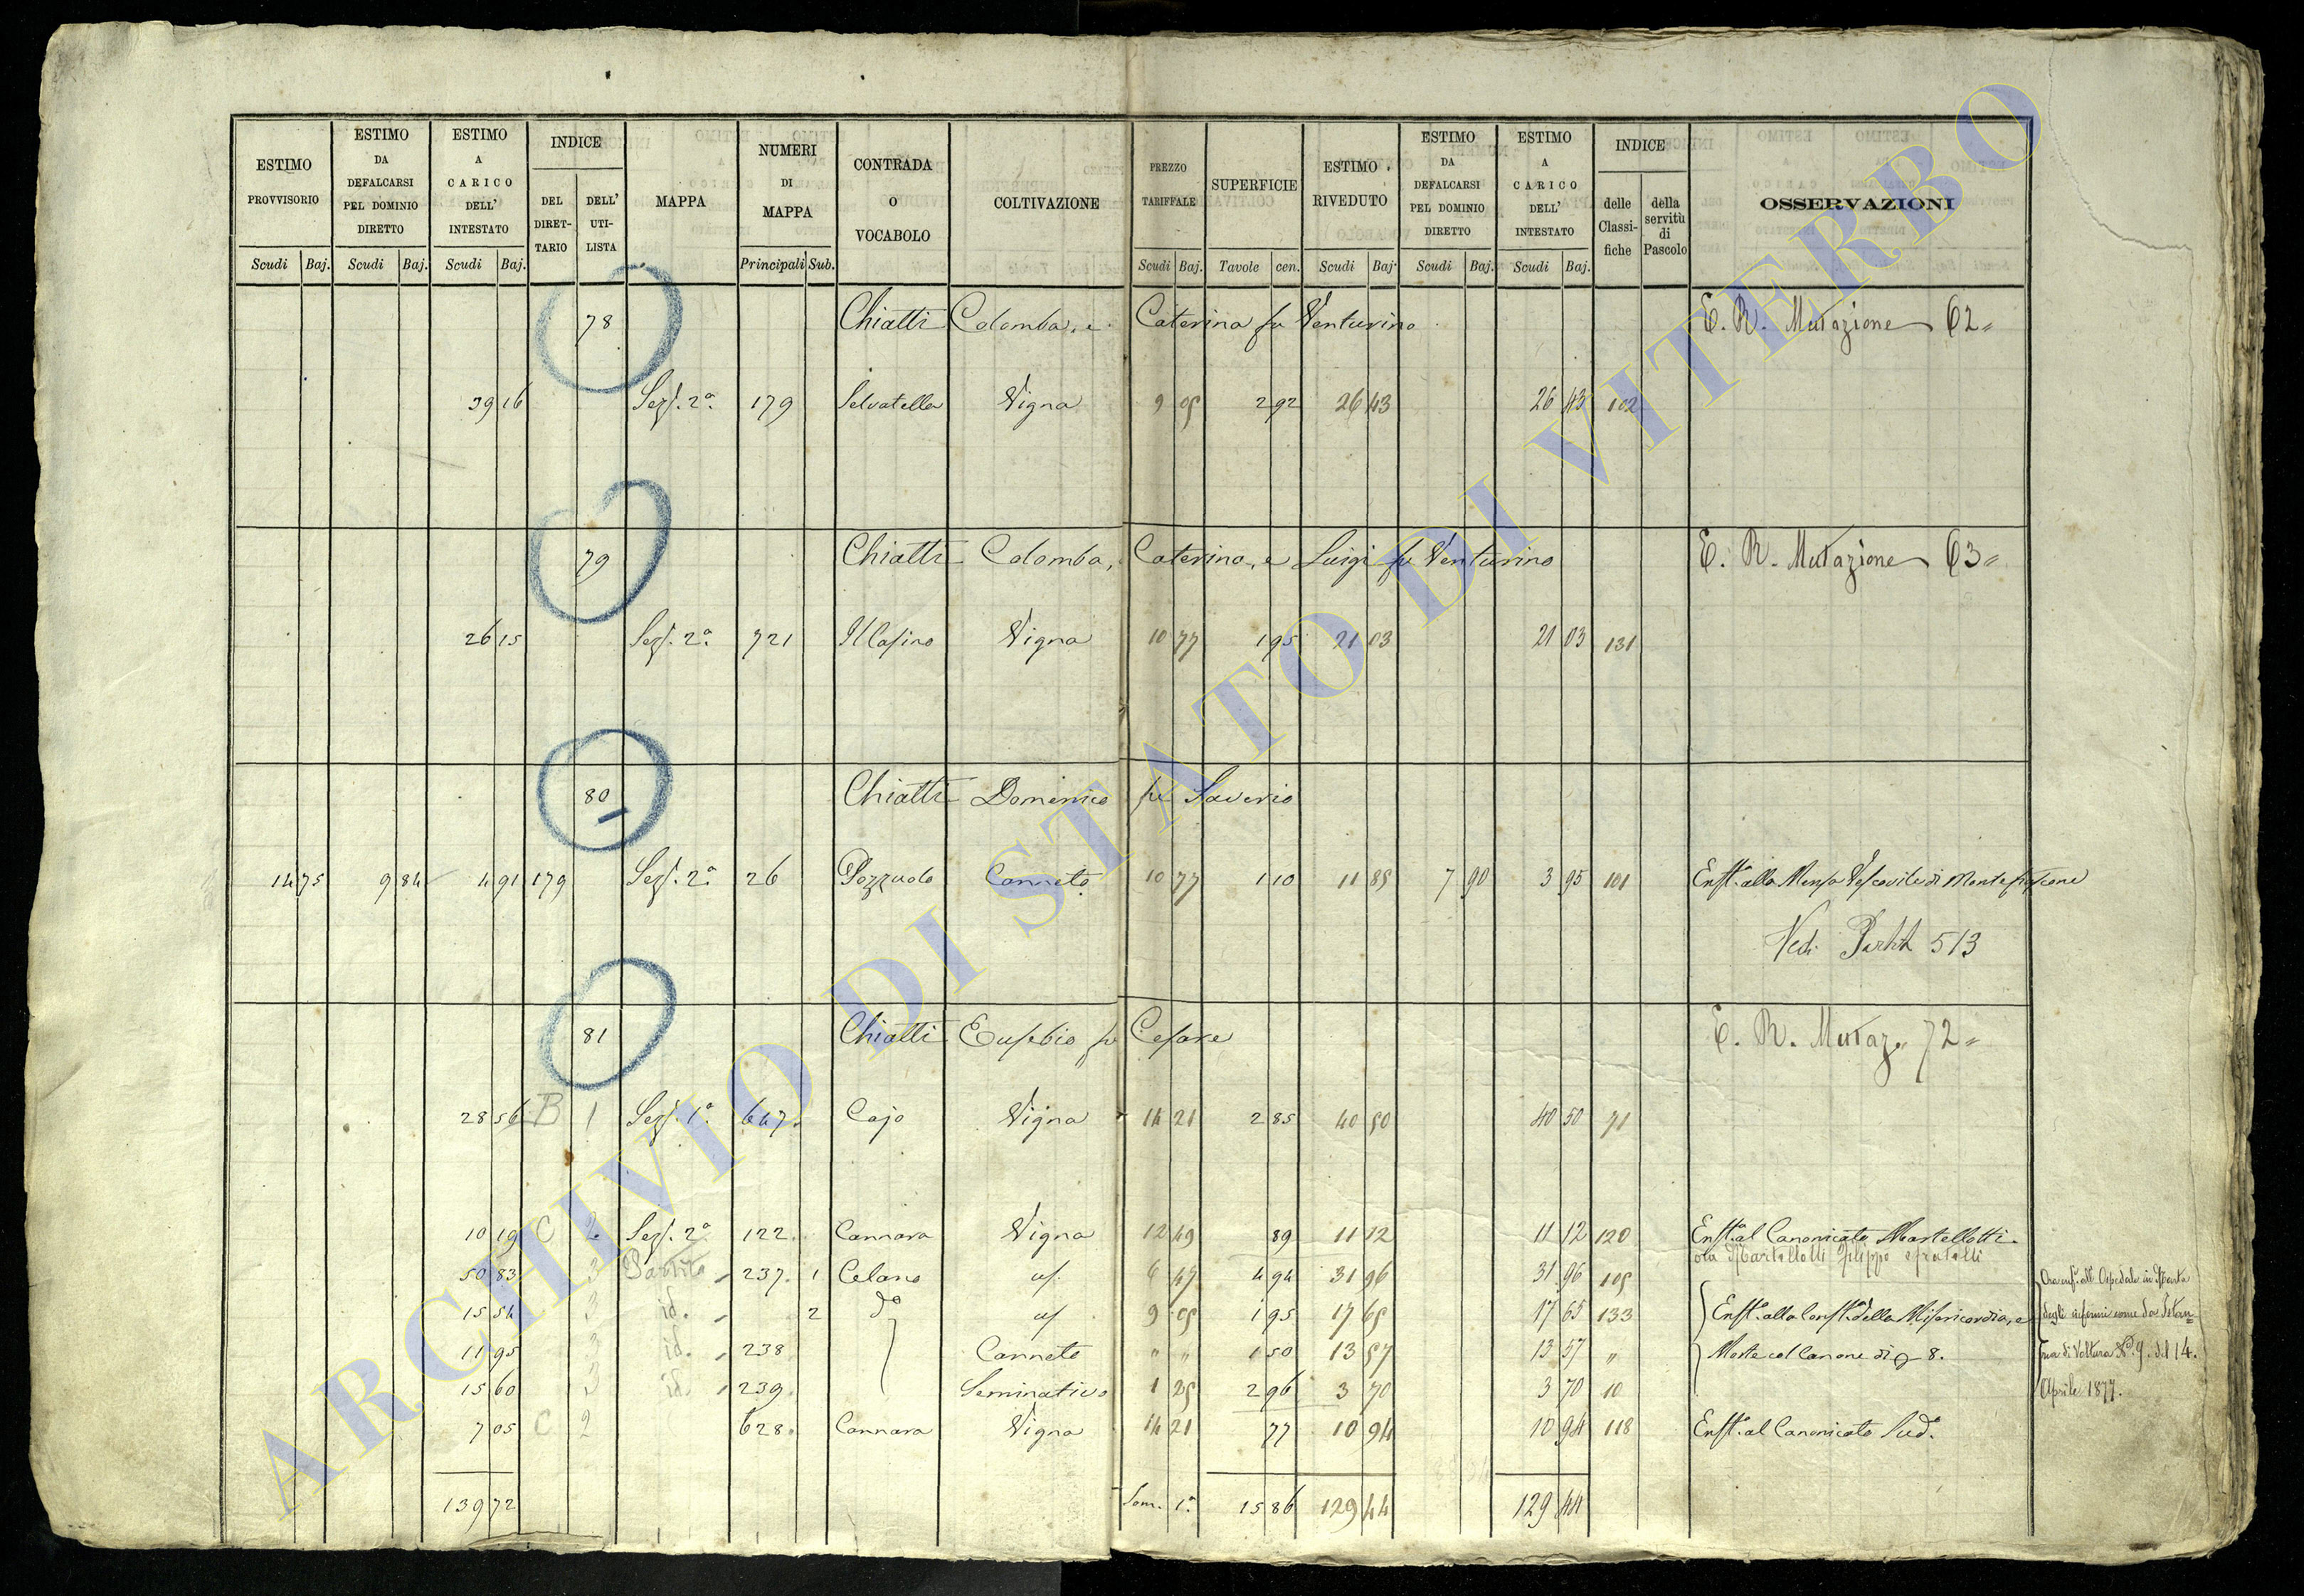 ESTIMO PROVVISORIO | ESTIMO DA DEFALCARSI PEL DOMINIO DIRETTO | ESTIMO A CARICO DELL' INTESTATO | INDICE | MAPPA | NUMERI DI MAPPA | CONTRADA O VOCABOLO | COLTIVAZIONE | PREZZO TARIFFALE | SUPERFICIE | ESTIMO RIVEDUTO | ESTIMO DA DEFALCARSI PEL DOMINIO DIRETTO | ESTIMO A CARICO DELL' INTESTATO | INDICE | OSSERVAZIONI
DEL DIRETTARIO | DELL' UTILISTA | delle Classifiche | della servitù di Pascolo
Scudi Baj. Scudi Baj. Scudi Baj. Principali Sub. Scudi Baj. Tavole cen. Scudi Baj. Scudi Baj. Scudi Baj.
78 Chiatti Colomba, e Caterina fu Venturino E. R. Mutazione 62
39 16 Sez. 2a 179 Selvatella Vigna 9 05 2 92 26 43 26 43 102
79 Chiatti Colomba, Caterina, e Luigi fu Venturino E. R. Mutazione 63
26 15 Sez. 2a 721 Il Casino Vigna 10 77 1 95 21 03 21 03 131
80 Chiatti Domenico fu Saverio
14 75 9 84 4 91 179 Sez. 2a 26 Pozzuolo Canneto 10 77 1 10 11 85 7 90 3 95 101 Enfta. alla Mensa Vescovile di Montefiascone
Vedi Partita 513
81 Chiatti Eusebio fu Cesare E. R. Mutaz. 72
28 56 B 1 Sez. 1a 647 Cajo Vigna 14 21 2 85 40 50 40 50 71
10 19 C 2 Sez. 2a 122 Cannara Vigna 12 49 89 11 12 11 12 120 Enfta. al Canonicato Martellotti
ora Martellotti Filippo e fratelli
50 83 3 237 1 Celano 6 47 4 94 31 96 31 96 105
15 54 3 id. 2 do 9 05 1 95 17 65 17 65 133 Enfta. alla Confta. della Misericordia, e
11 95 3 id. 238 Canneto " " 1 50 13 57 13 57 " Morte col Canone di 8.
15 60 3 id. 239 Seminativo 1 25 2 96 3 70 3 70 10
Ora enft. all' Ospedale in
degli infermi come da
di Voltura No. 9. del 14.
Aprile 1877.
7 05 C 2 628 Cannara Vigna 14 21 77 10 94 10 94 118 Enfta. al Canonicato Sudo.
139 72 Som. 1a 15 86 129 44 129 44
ARCHIVIO DI STATO DI VITERBO